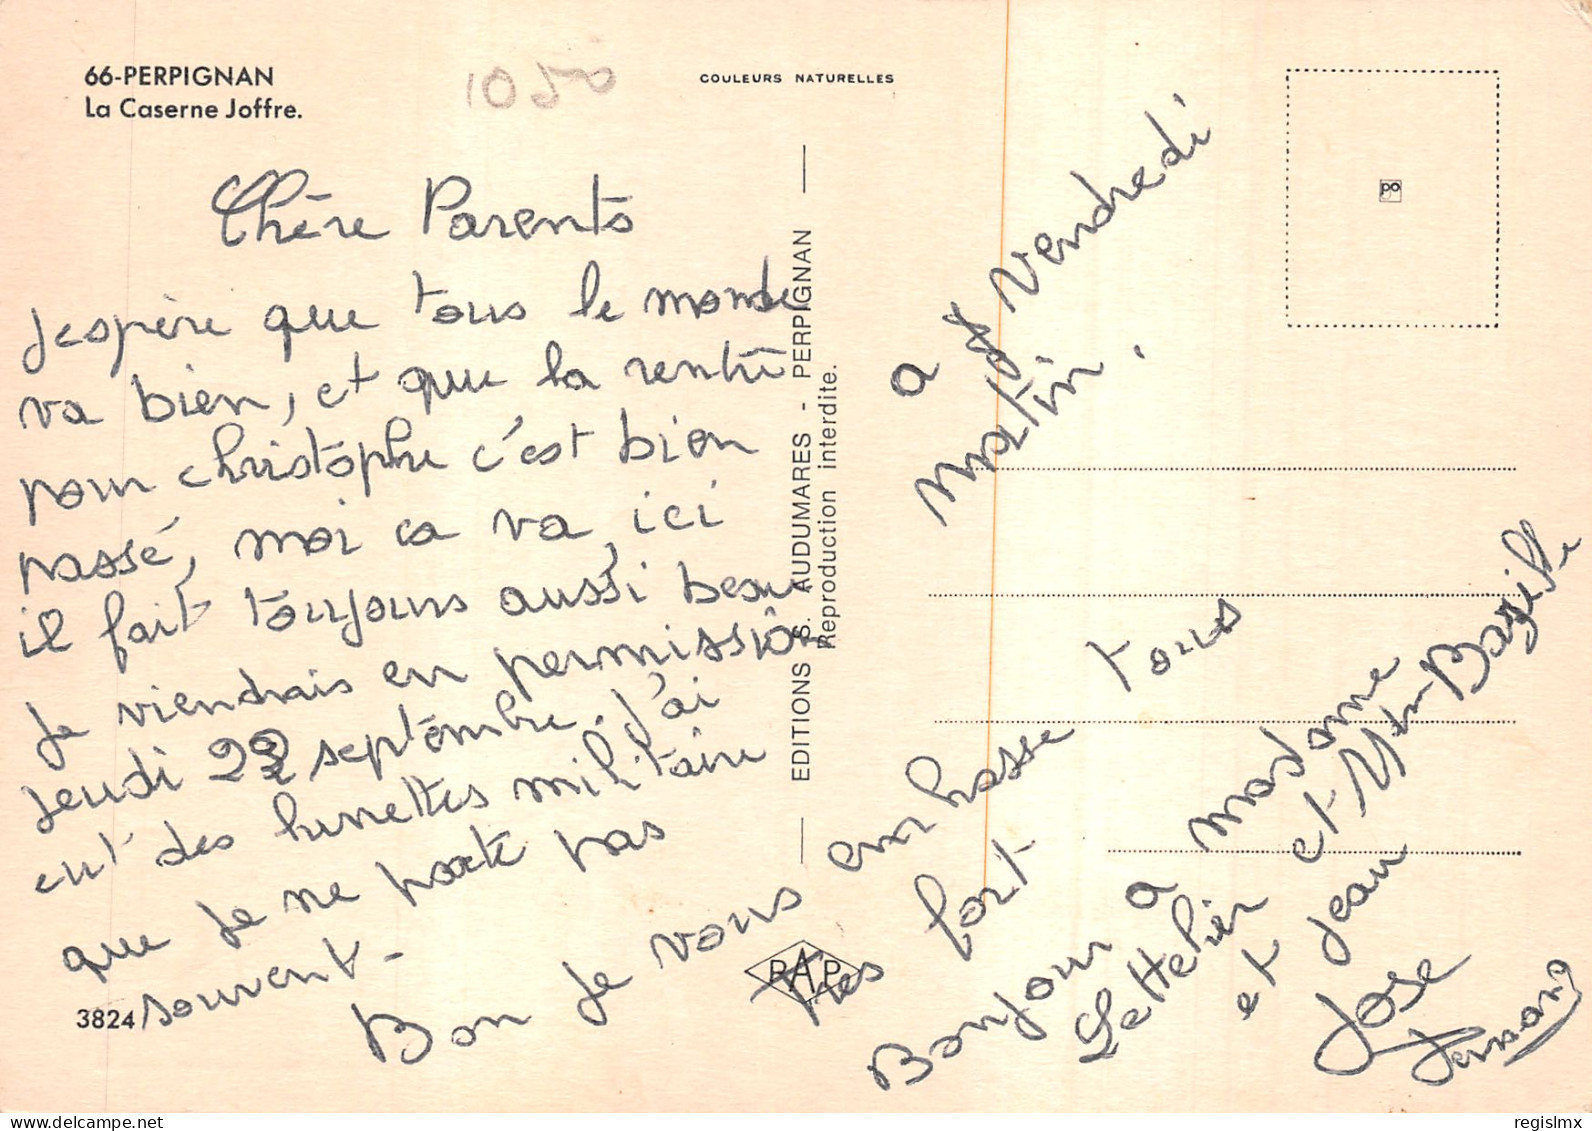 66-PERPIGNAN
La Caserne Joffre.
1050
COULEURS NATURELLES
po
Chère Parents
J'espère que tous le monde
va bien, et que la rentré
pour christophe c'est bien
passé, moi ca va, ici
il fait toujours aussi beau
Je viendrais en permission
jeudi 22 septembre. J'ai
eut des lunettes militaire
que Je ne porte pas
souvent-
3824
Bon Je vous embrasse tous
très fort
a Vendredi
matin.
Bonjour a madame
Lettelier et Mm Bazille
et Jean
José
EDITIONS S. AUDUMARES - PERPIGNAN
Reproduction interdite.
RAP
regislmx